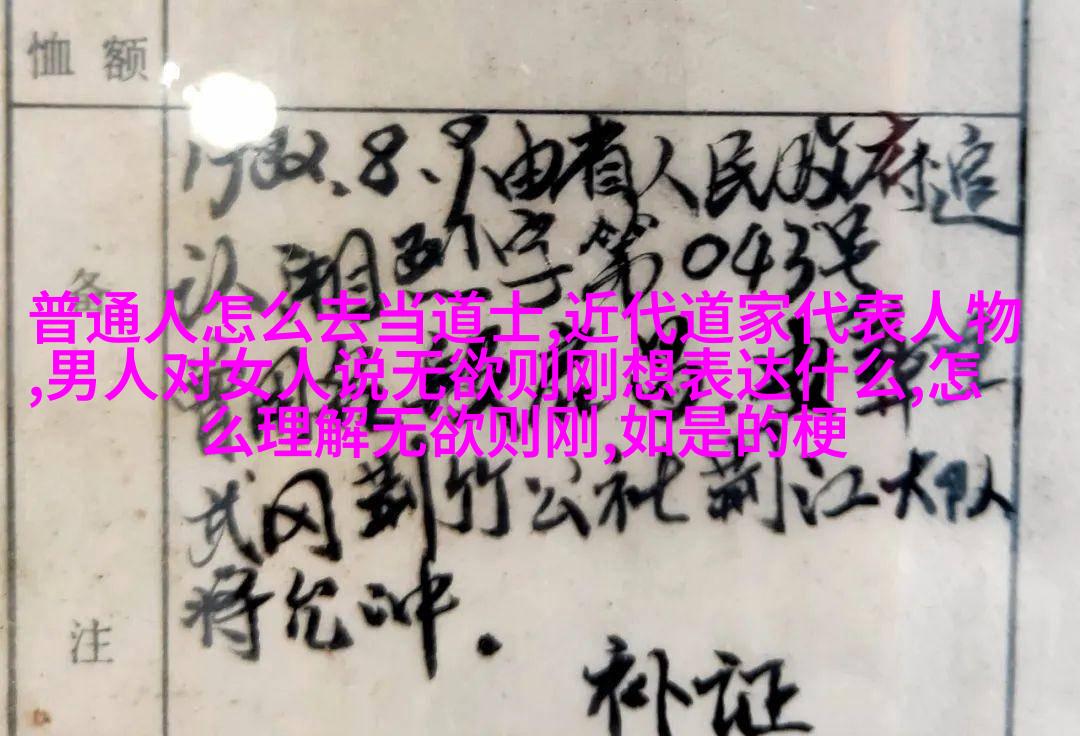 恤额
1982.8.9由省人民政府追
认湘烈字第043号
备
普通人怎么去当道士,近代道家代表人物
,男人对女人说无欲则刚想表达什么,怎
么理解无欲则刚,如是的梗
武冈荆竹公社荆江大队
蒋允冲.
注
补证